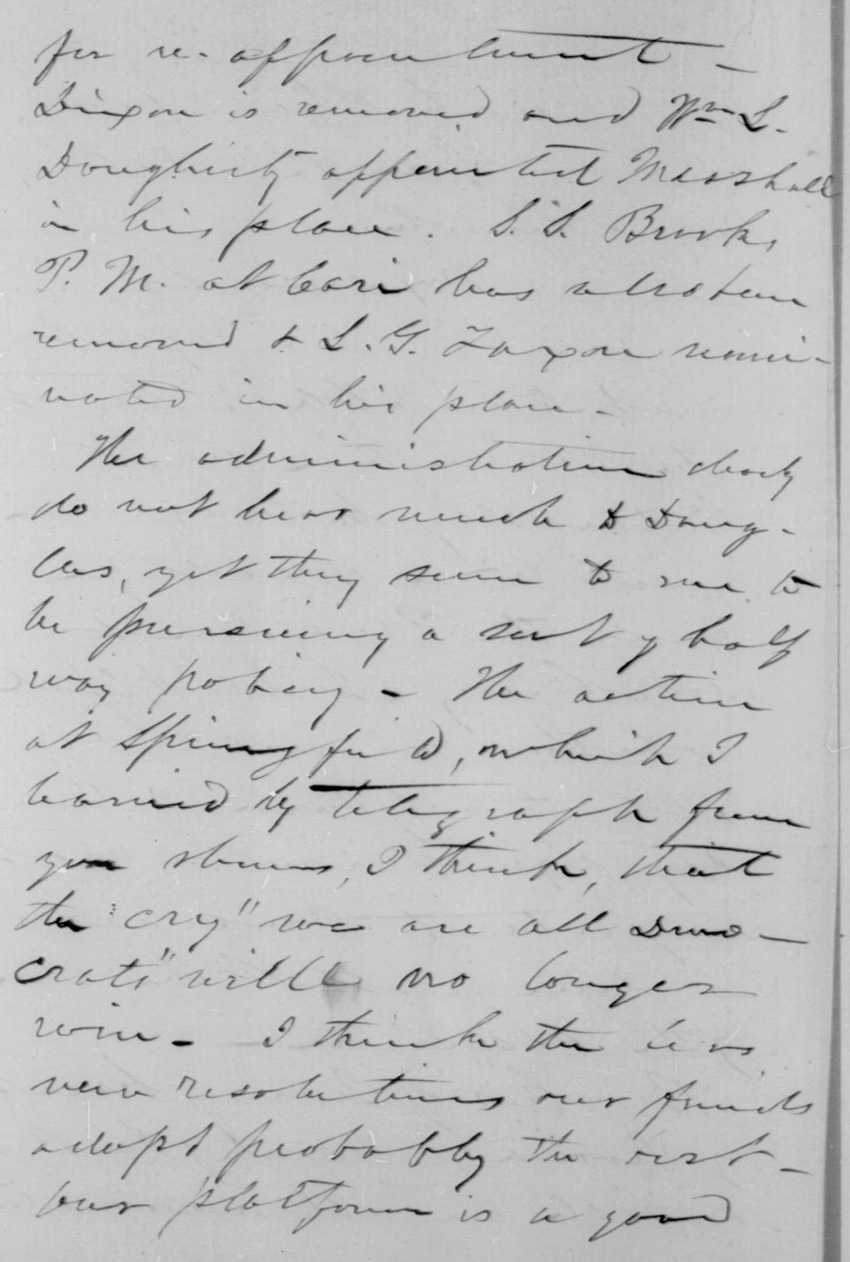 for re-appointment –
Dixon is removed and Wm L.
Dougherty appointed Marshall
in his place. S. S. Brooks
P. M. at Cairo has also been
removed & L. G. Faxon nomi-
nated in his place –
The administration clearly
do not bear much to Doug-
las, yet they seem to me to
be pursuing a sort of half
way policy – The action
at Springfield, which I
learned by telegraph from
you shows, I think, that
the "cry" we are all Demo-
crats" will no longer
win – I think the
new resolutions our friends
adopt probably the best –
our platform is a good